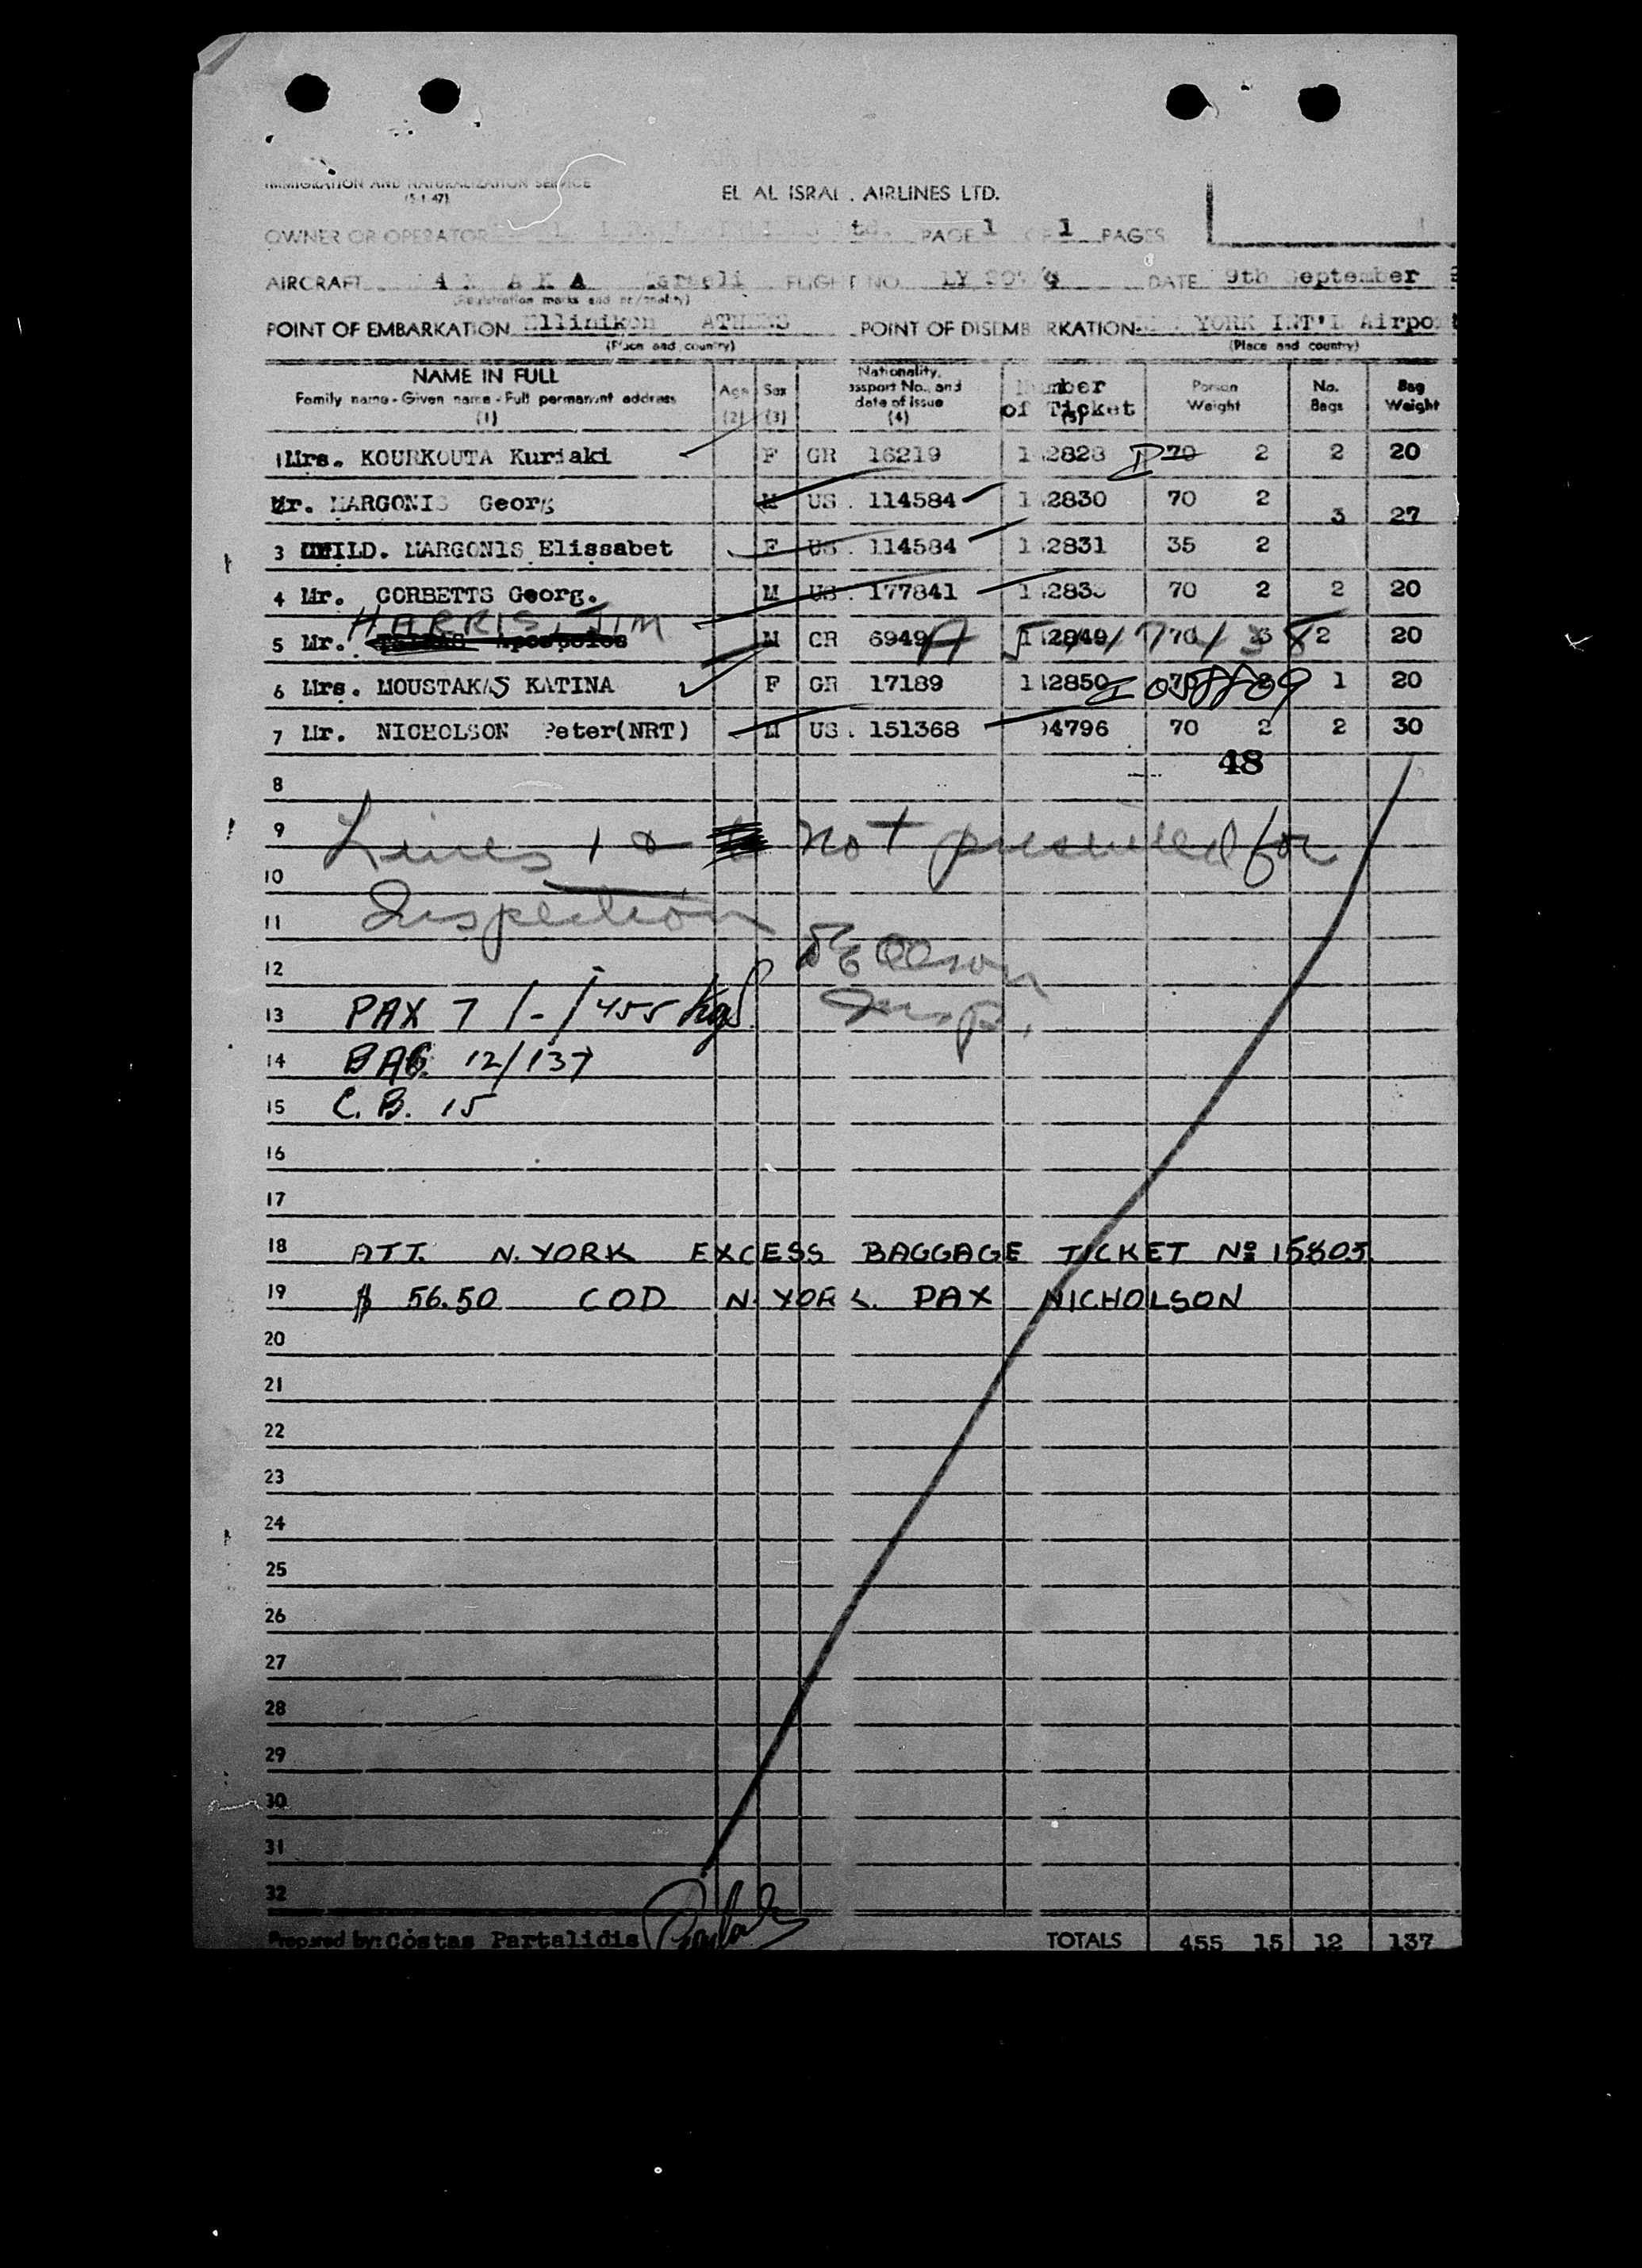 IMMIGRATION AND NATURALIZATION SERVICE
(5-1-47)
EL AL ISRAEL AIRLINES LTD.
OWNER OR OPERATOR td. PAGE 1 OF 1 PAGES
AIRCRAFT 4 X A K A Israeli FLIGHT NO. LY DATE 9th September
(Registration marks and nationality)
POINT OF EMBARKATION Ellinikon ATHENS POINT OF DISEMBARKATION YORK INT'L Airport
(Place and country) (Place and country)
NAME IN FULL Age Sex Nationality, Passport No., and date of issue Number of Ticket Person Weight No. Bags Bag Weight
Family name - Given name - Full permanent address
(1) (2) (3) (4) (5)
1 Mrs. KOURKOUTA Kuriaki F GR 16219 1 2828 70 2 2 20
2 Mr. MARGONIS Georg M US. 114584 1 2830 70 2 3 27
3 CHILD. MARGONIS Elissabet F US. 114584 1 2831 35 2
4 Mr. CORBETTS Georg. M US. 177841 1 283 70 2 2 20
HARRIS, JIM
5 Mr. Apostolos M GR 6949 2849 70 2 20
6 Mrs. MOUSTAKAS KATINA F GR 17189 1 2850 1 20
7 Mr. NICHOLSON Peter(NRT) M US. 151368 4796 70 2 2 30
48
8
9 Lines 1 & not presented for
10
11 Inspection
12 Olson
13 PAX 7 /-/ 455 kgs Insp.
14 BAG. 12/137
15 C.B. 15
16
17
18 ATT. N. YORK EXCESS BAGGAGE TICKET No 15805.
19 $ 56.50 COD N. YORK. PAX NICHOLSON
20
21
22
23
24
25
26
27
28
29
30
31
32
Prepared by: Costas Partalidis TOTALS 455 15 12 137